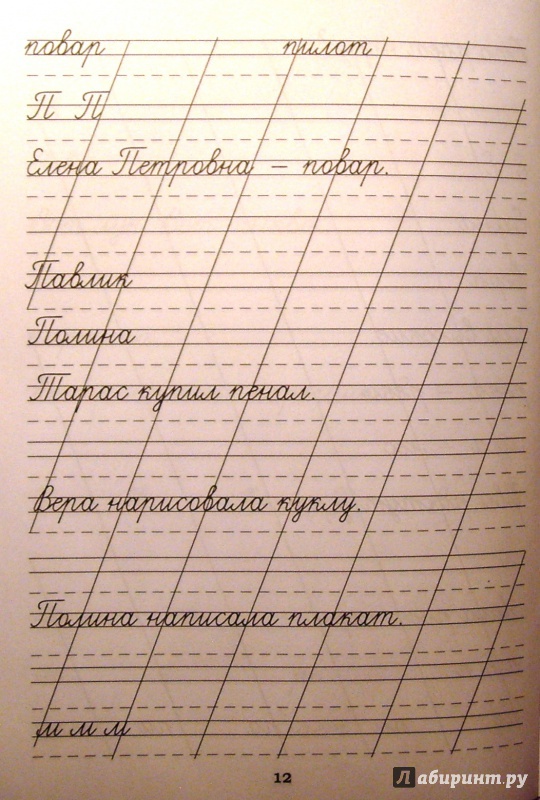 повар пилот
П П
Елена Петровна – повар.
Павлик
Полина
Тарас купил пенал.
Вера нарисовала куклу.
Полина написала плакат.
м м м
12
Лабиринт.ру